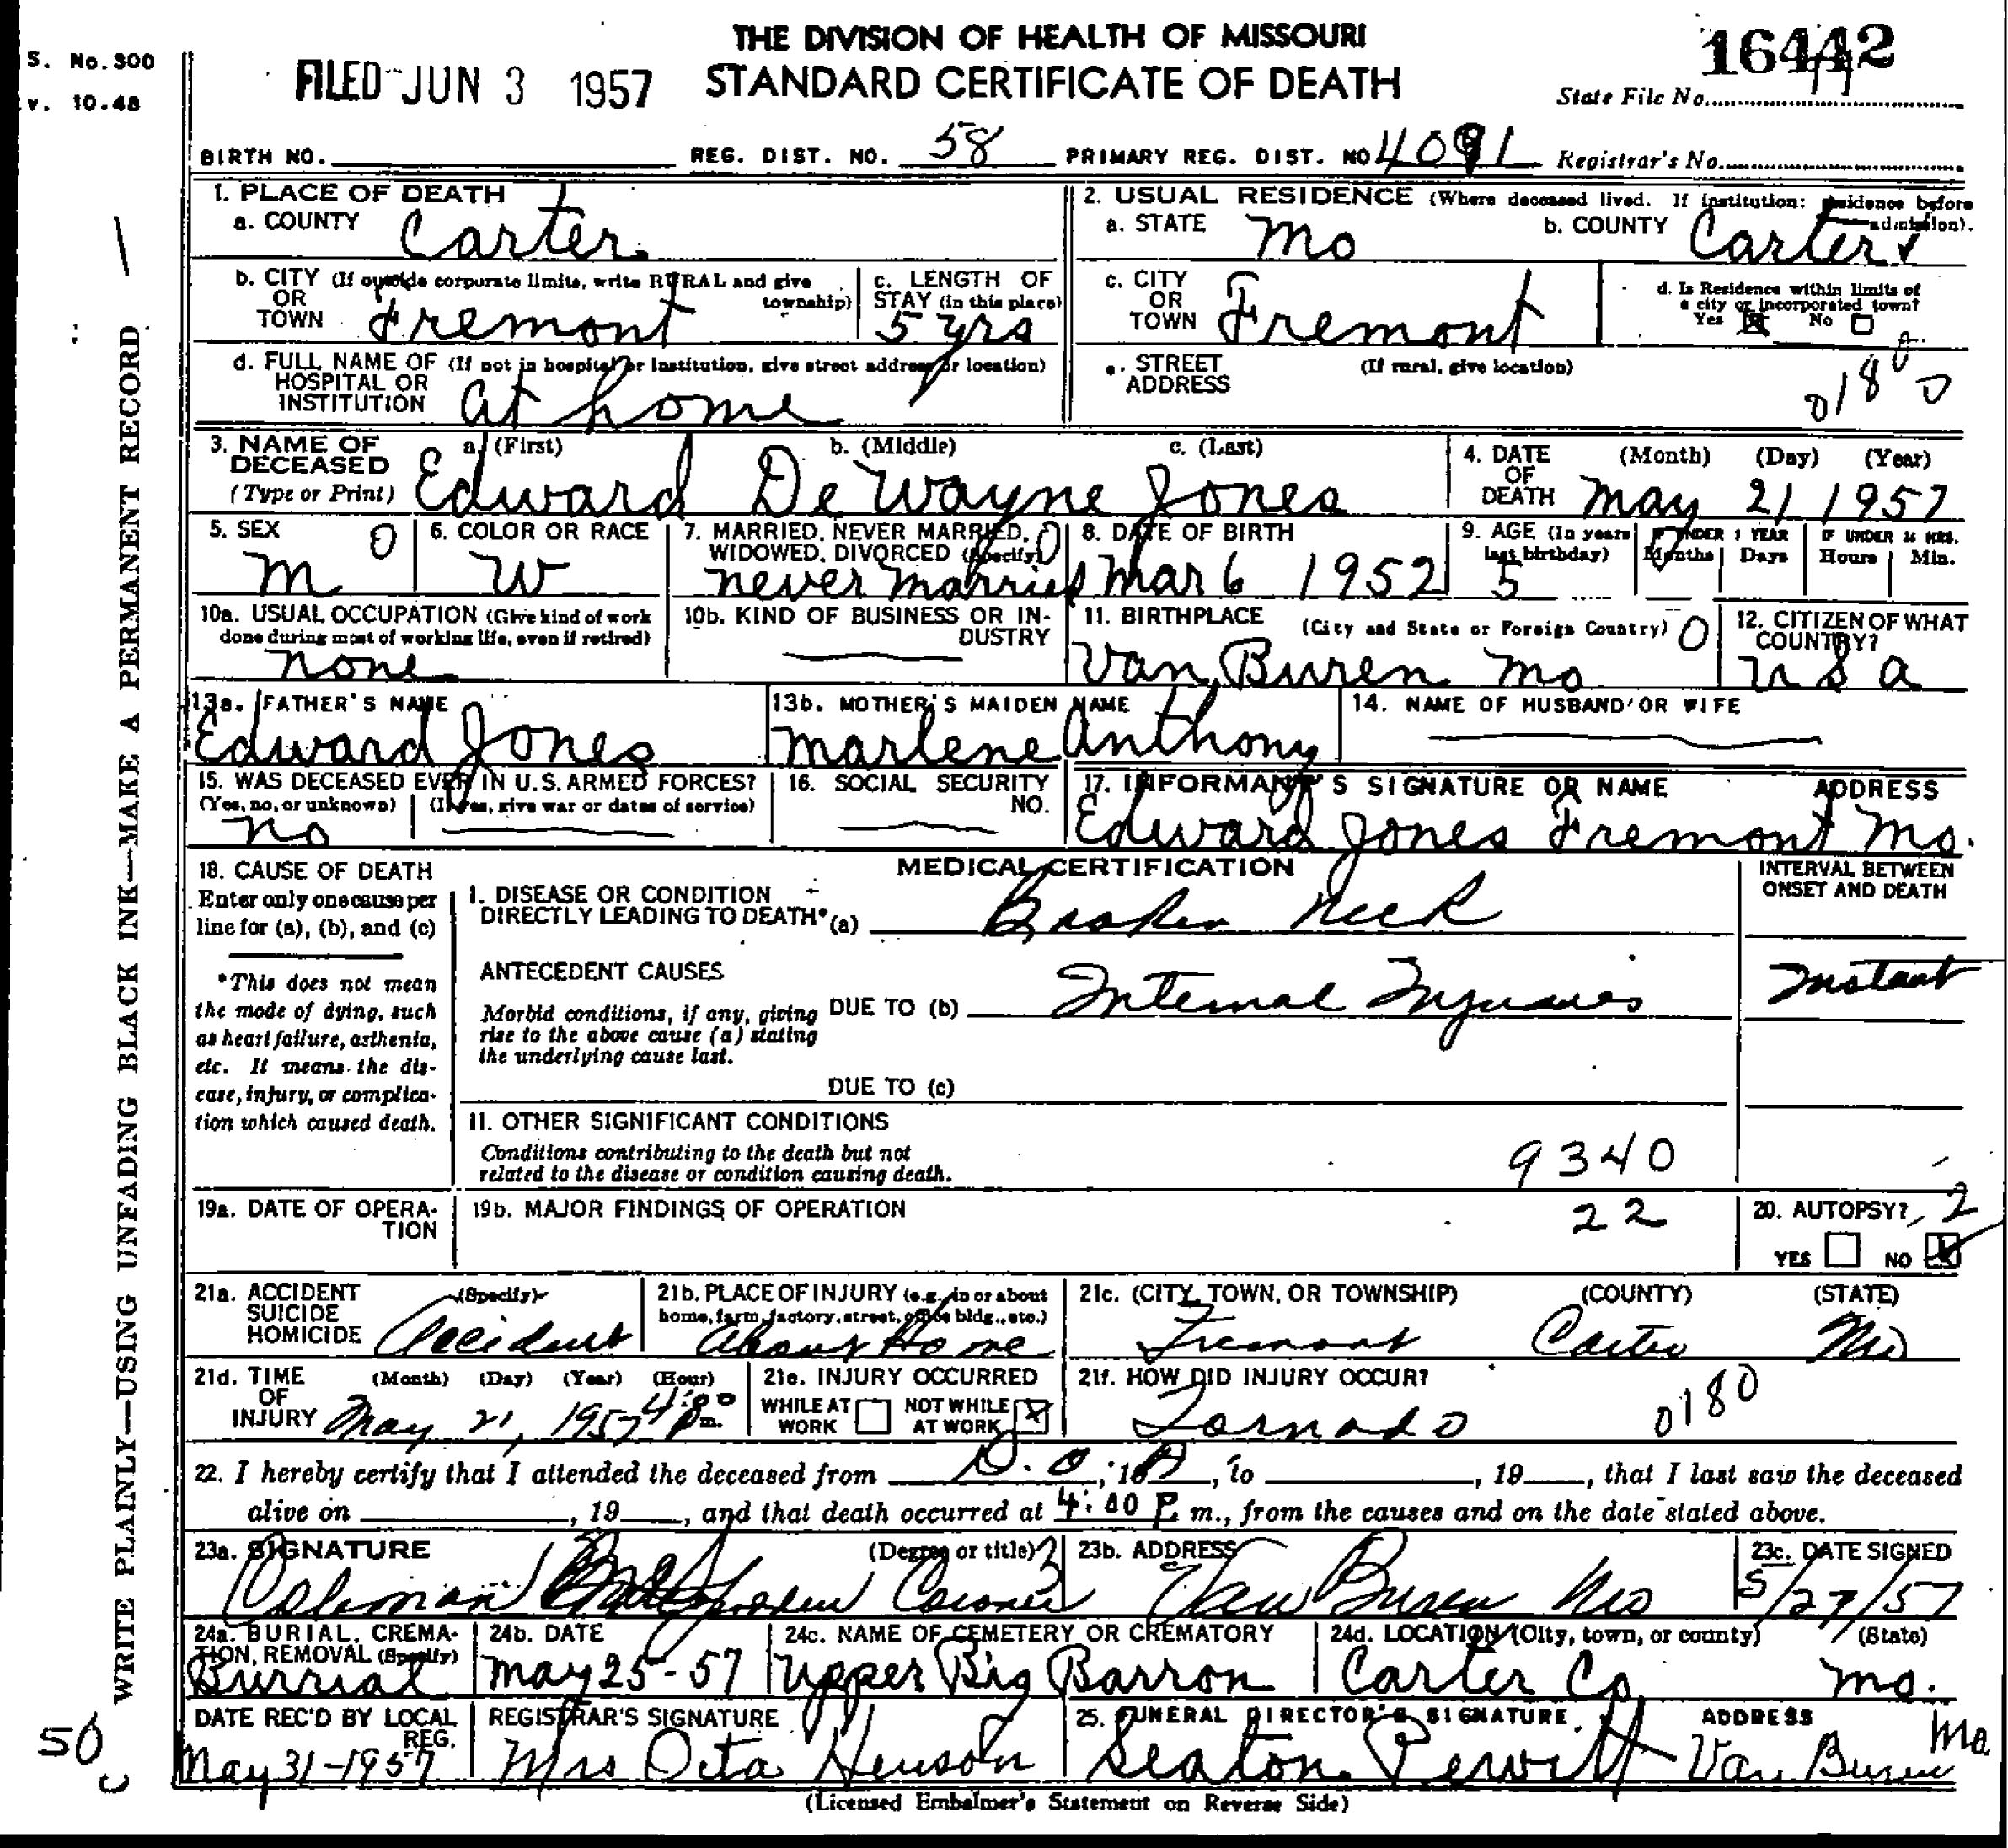 THE DIVISION OF HEALTH OF MISSOURI
STANDARD CERTIFICATE OF DEATH
S. No. 300
v. 10.48
FILED JUN 3 1957
16442
State File No.
BIRTH NO. REG. DIST. NO. 58 PRIMARY REG. DIST. NO 4091 Registrar's No.
WRITE PLAINLY—USING UNFADING BLACK INK—MAKE A PERMANENT RECORD
1. PLACE OF DEATH
a. COUNTY Carter
2. USUAL RESIDENCE (Where deceased lived. If institution: residence before admission).
a. STATE Mo b. COUNTY Carter
b. CITY (If outside corporate limits, write RURAL and give township) OR TOWN Fremont
c. LENGTH OF STAY (in this place) 5 yrs
c. CITY OR TOWN Fremont
d. Is Residence within limits of a city or incorporated town? Yes No
d. FULL NAME OF (If not in hospital or institution, give street address or location) HOSPITAL OR INSTITUTION at home
e. STREET ADDRESS (If rural, give location)
0180 0
3. NAME OF DECEASED (Type or Print)
a. (First) b. (Middle) c. (Last)
Edward De Wayne Jones
4. DATE OF DEATH (Month) (Day) (Year)
May 21 1957
5. SEX 0
M
6. COLOR OR RACE
W
7. MARRIED, NEVER MARRIED, WIDOWED, DIVORCED (Specify) 0
never married
8. DATE OF BIRTH
Mar 6 1952
9. AGE (In years last birthday) 5
IF UNDER 1 YEAR Months Days
IF UNDER 24 HRS. Hours Min.
10a. USUAL OCCUPATION (Give kind of work done during most of working life, even if retired)
none
10b. KIND OF BUSINESS OR INDUSTRY
11. BIRTHPLACE (City and State or Foreign Country) 0
Van Buren Mo
12. CITIZEN OF WHAT COUNTRY?
U S A
13a. FATHER'S NAME
Edward Jones
13b. MOTHER'S MAIDEN NAME
Marlene Anthony
14. NAME OF HUSBAND OR WIFE
15. WAS DECEASED EVER IN U.S. ARMED FORCES?
(Yes, no, or unknown) (If yes, give war or dates of service)
no
16. SOCIAL SECURITY NO.
17. INFORMANT'S SIGNATURE OR NAME ADDRESS
Edward Jones Fremont Mo.
18. CAUSE OF DEATH
Enter only one cause per line for (a), (b), and (c)
*This does not mean the mode of dying, such as heart failure, asthenia, etc. It means the disease, injury, or complication which caused death.
MEDICAL CERTIFICATION
INTERVAL BETWEEN ONSET AND DEATH
I. DISEASE OR CONDITION DIRECTLY LEADING TO DEATH* (a) Broken Neck
ANTECEDENT CAUSES
Morbid conditions, if any, giving rise to the above cause (a) stating the underlying cause last.
DUE TO (b) Internal Injuries
Instant
DUE TO (c)
II. OTHER SIGNIFICANT CONDITIONS
Conditions contributing to the death but not related to the disease or condition causing death.
9340
19a. DATE OF OPERATION
19b. MAJOR FINDINGS OF OPERATION
22
20. AUTOPSY? 2
YES NO
21a. ACCIDENT SUICIDE HOMICIDE (Specify)
Accident
21b. PLACE OF INJURY (e.g., in or about home, farm, factory, street, office bldg., etc.)
About Home
21c. (CITY, TOWN, OR TOWNSHIP) (COUNTY) (STATE)
Fremont Carter Mo
21d. TIME OF INJURY (Month) (Day) (Year) (Hour)
May 21, 1957 4:00 P m.
21e. INJURY OCCURRED
WHILE AT WORK NOT WHILE AT WORK
21f. HOW DID INJURY OCCUR?
Tornado
0180
22. I hereby certify that I attended the deceased from D.O.A, 19, to , 19 , that I last saw the deceased
alive on , 19 , and that death occurred at 4:00 P. m., from the causes and on the date stated above.
23a. SIGNATURE (Degree or title)
Coleman Coroner
23b. ADDRESS
Van Buren Mo
23c. DATE SIGNED
5/27/57
24a. BURIAL, CREMATION, REMOVAL (Specify)
Burrial
24b. DATE
May 25-57
24c. NAME OF CEMETERY OR CREMATORY
Upper Big Barron
24d. LOCATION (City, town, or county) (State)
Carter Co Mo.
DATE REC'D BY LOCAL REG.
May 31-1957
REGISTRAR'S SIGNATURE
Mrs Oeta Henson
25. FUNERAL DIRECTOR'S SIGNATURE ADDRESS
Seaton Pewitt Van Buren Mo.
50
(Licensed Embalmer's Statement on Reverse Side)